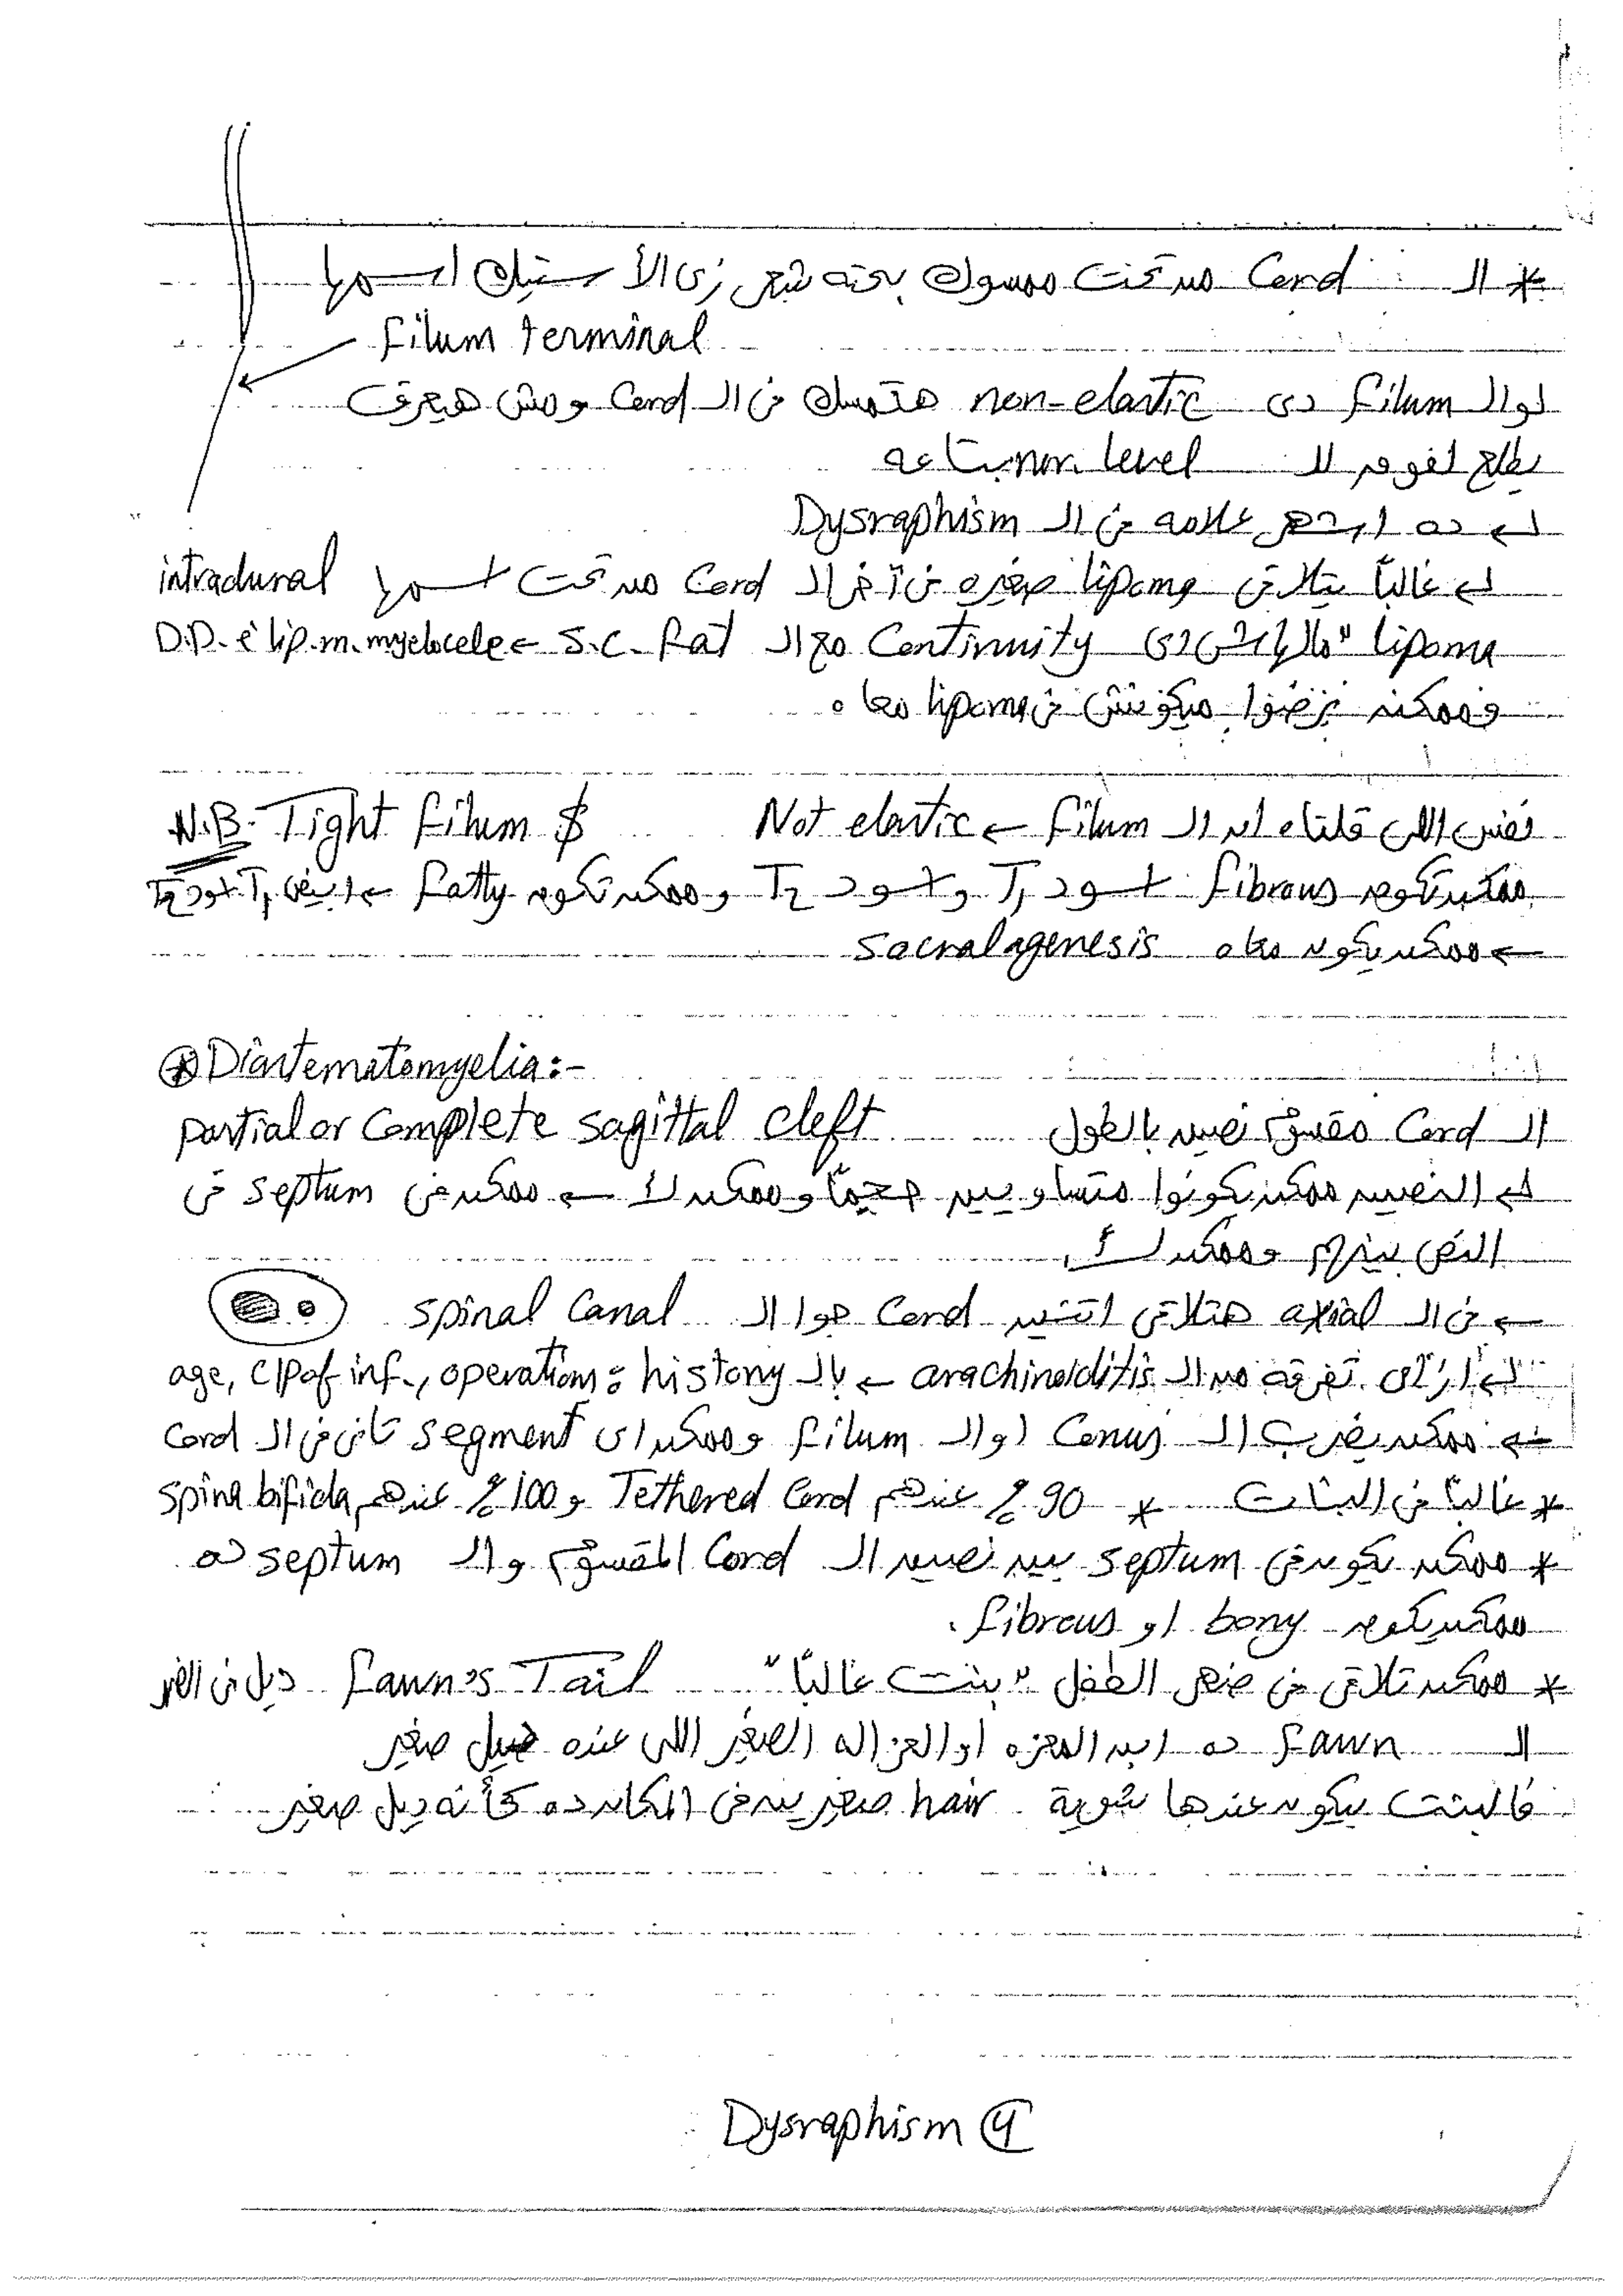 * الـ Cord من تحت ممسوك بحته شبهى زى الأستيك اسمها
filum terminal
لو الـ filum دى non-elastic هتمسك فى الـ Cord ومش هيعرف
يطلع لفوق للـ nor. level بتاعه
↳ ده اشهر علامه فى الـ Dysraphism
↳ غالباً بتلاقى lipoma صغيره فى آخر الـ Cord من تحت اسمها intradural
lipoma "مالهاش دى Continuity مع الـ S.C. fat ← D.D. è lip.m.myelocele
وممكن برضوا ميكونش فى lipoma معاه.
N.B. Tight filum $ نفس اللى قلناه ان الـ filum ← Not elastic
ممكن تكون fibrous اسود T1 واسود T2 وممكن تكون fatty ← ابيض T1 اسود T2
← ممكن يكون معاه sacral agenesis
⊛ Diastematomyelia:-
partial or complete sagittal cleft الـ Cord مقسوم نصين بالطول
↳ النصين ممكن يكونوا متساويين حجماً وممكن لأ ← ممكن فى septum فى
النص بينهم وممكن لأ.
← فى الـ axial هتلاقى اتنين Cord جوا الـ spinal Canal
↳ ازاى تفرقه من الـ arachinoiditis ← بالـ history: age, C/P of inf., operation
← ممكن يضرب الـ Conus او الـ filum وممكن اى segment تانى فى الـ Cord
* غالباً فى البنات * 90 % عندهم Tethered Cord و 100 % عندهم spina bifida
* ممكن يكون فى septum بين نصين الـ Cord المقسوم والـ septum ده
ممكن يكون bony او fibrous.
* ممكن تلاقى فى ضهر الطفل "بنت غالباً" fawn's Tail ديل فى الضهر
الـ fawn ده ابن المعزه او الغزاله الصغير اللى عنده ديل صغير
فالبنت بيكون عندها شوية hair صغيرين فى المكان ده كأنه ديل صغير
Dysraphism ④